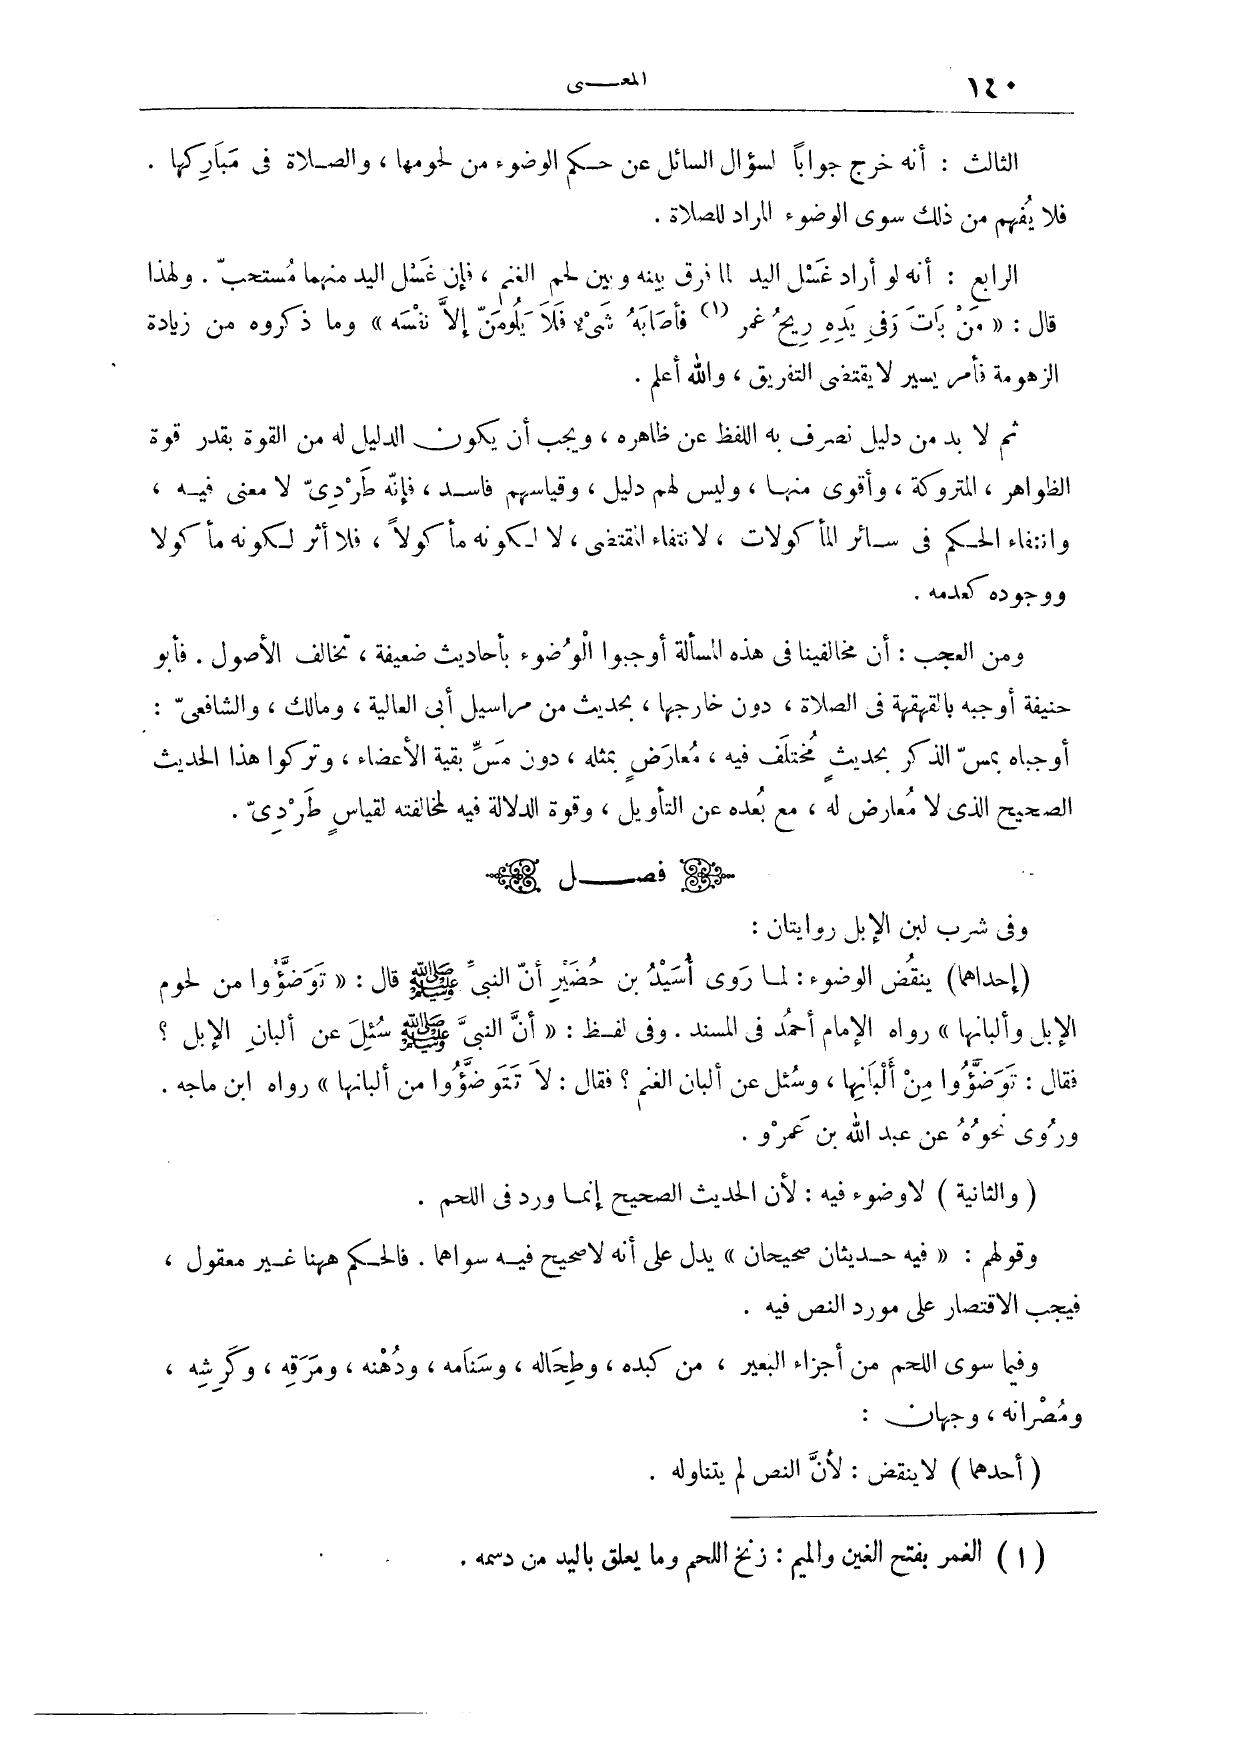 ١٤٠ المغـــنى
الثالث : أنه خرج جواباً لسؤال السائل عن حكم الوضوء من لحومها ، والصلاة فى مَبَارِكها .
فلا يُفهم من ذلك سوى الوضوء المراد للصلاة .
الرابع : أنه لو أراد غَسْل اليد لما فرق بينه وبين لحم الغنم ، فإن غَسْل اليد منهما مُستحبّ . ولهذا
قال : « مَنْ بَاتَ وَفى يَدِهِ رِيحُ غمر (١) فأصَابَهُ شَىْء فَلاَ يَلُومَنّ إلاَّ نفْسَه » وما ذكروه من زيادة
الزهومة فأمر يسير لا يقتضى التفريق ، والله أعلم .
ثم لا بد من دليل نصرف به اللفظ عن ظاهره ، ويجب أن يكون الدليل له من القوة بقدر قوة
الظواهر ، المتروكة ، وأقوى منها ، وليس لهم دليل ، وقياسهم فاسد ، فإنّه طَرْدِىّ لا معنى فيه ،
وانتفاء الحكم فى سائر المأكولات ، لانتفاء المقتضى ، لا لكونه مأكولاً ، فلا أثر لكونه مأكولا
ووجوده كعدمه .
ومن العجب : أن مخالفينا فى هذه المسألة أوجبوا الْوُضوء بأحاديث ضعيفة ، تخالف الأصول . فأبو
حنيفة أوجبه بالقهقهة فى الصلاة ، دون خارجها ، بحديث من مراسيل أبى العالية ، ومالك ، والشافعىّ :
أوجباه بمسّ الذكر بحديثٍ مُختلَف فيه ، مُعارَضٍ بمثله ، دون مَسِّ بقية الأعضاء ، وتركوا هذا الحديث
الصحيح الذى لا مُعارض له ، مع بُعده عن التأويل ، وقوة الدلالة فيه لمخالفته لقياسٍ طَرْدِىّ .
فصـــل
وفى شرب لبن الإبل روايتان :
(إحداهما) ينقُض الوضوء : لما رَوى أُسَيْدُ بن حُضَيْرِ أنّ النبىَّ ﷺ قال : « تَوَضَّؤْوا من لحوم
الإبل وألبانها » رواه الإمام أحمدُ فى المسند . وفى لفظ : « أنَّ النبىَّ ﷺ سُئِلَ عن ألبانِ الإبل ؟
فقال : تَوَضَّؤُوا مِنْ أَلْبَانِها ، وسُئل عن ألبان الغنم ؟ فقال : لاَ تَتَوضَّؤُوا من ألبانها » رواه ابن ماجه .
ورُوى نحوُهُ عن عبد الله بن عَمرْو .
( والثانية ) لاوضوء فيه : لأن الحديث الصحيح إنما ورد فى اللحم .
وقولهم : « فيه حديثان صحيحان » يدل على أنه لاصحيح فيه سواهما . فالحكم ههنا غير معقول ،
فيجب الاقتصار على مورد النص فيه .
وفيما سوى اللحم من أجزاء البعير ، من كبده ، وطِحَاله ، وسَنَامه ، ودُهْنه ، ومَرَقِه ، وكَرِشِه ،
ومُصْرانه ، وجهان :
( أحدهما ) لاينقض : لأنَّ النص لم يتناوله .
(١) الغمر بفتح الغين والميم : زنخ اللحم وما يعلق باليد من دسمه .